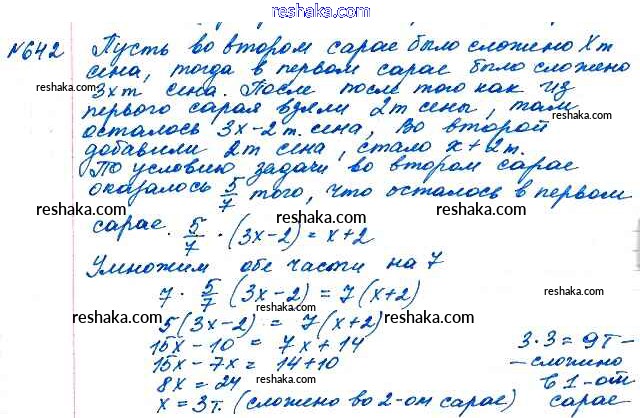 reshaka.com
№642 Пусть во втором сарае было сложено Xт
сена, тогда в первом сарае было сложено
reshaka.com reshaka.com reshaka.com
3xт сена. После после того как из
первого сарая взяли 2т сены, там
осталось 3x-2т. сена, во второй
reshaka.com reshaka.com reshaka.com
добавили 2т сена, стало x+2т.
По условию задачи во втором сарае
оказалось 5/7 того, что осталось в первом
reshaka.com reshaka.com reshaka.com
сарае. 5/7 · (3x-2) = x+2
Умножим обе части на 7
reshaka.com reshaka.com reshaka.com
7 · 5/7 (3x-2) = 7(x+2)
reshaka.com reshaka.com reshaka.com
5(3x-2) = 7(x+2)
15x-10 = 7x+14
15x-7x = 14+10
8x = 24
reshaka.com
x = 3т. (сложено во 2-ом сарае)
3·3=9т-
-сложено
в 1-ом
сарае
reshaka.com reshaka.com